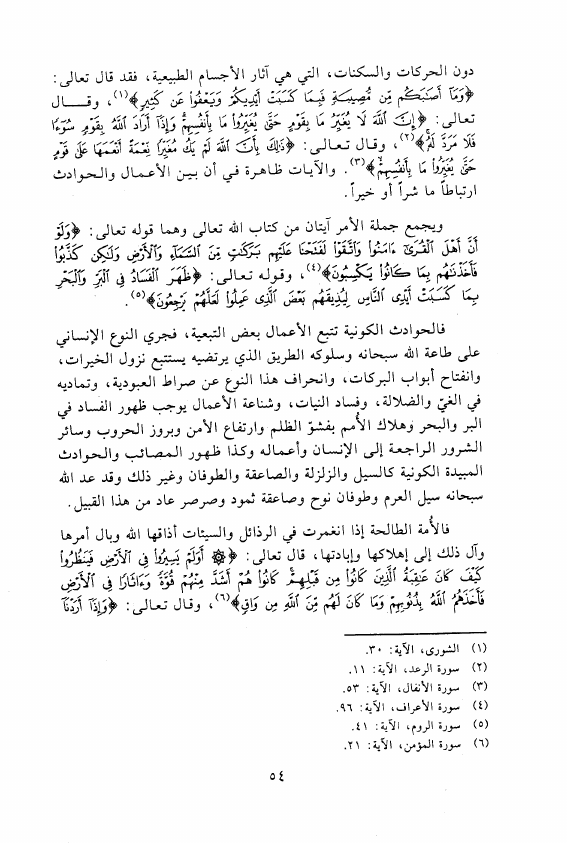 دون الحركات والسكنات، التي هي آثار الأجسام الطبيعية، فقد قال تعالى:
﴿وَمَآ أَصَٰبَكُم مِّن مُّصِيبَةٍ فَبِمَا كَسَبَتْ أَيْدِيكُمْ وَيَعْفُوا۟ عَن كَثِيرٍ﴾(١)، وقـــال
تعالى: ﴿إِنَّ ٱللَّهَ لَا يُغَيِّرُ مَا بِقَوْمٍ حَتَّىٰ يُغَيِّرُوا۟ مَا بِأَنفُسِهِمْ وَإِذَآ أَرَادَ ٱللَّهُ بِقَوْمٍ سُوٓءًا
فَلَا مَرَدَّ لَهُۥ﴾(٢)، وقال تـعـالى: ﴿ذَٰلِكَ بِأَنَّ ٱللَّهَ لَمْ يَكُ مُغَيِّرًا نِّعْمَةً أَنْعَمَهَا عَلَىٰ قَوْمٍ
حَتَّىٰ يُغَيِّرُوا۟ مَا بِأَنفُسِهِمْ﴾(٣). والآيات ظاهـرة في أن بـين الأعمـال والحـوادث
ارتباطاً ما شراً أو خيراً.
ويجمع جملة الأمر آيتان من كتاب الله تعالى وهما قوله تعالى: ﴿وَلَوْ
أَنَّ أَهْلَ ٱلْقُرَىٰٓ ءَامَنُوا۟ وَٱتَّقَوْا۟ لَفَتَحْنَا عَلَيْهِم بَرَكَٰتٍ مِّنَ ٱلسَّمَآءِ وَٱلْأَرْضِ وَلَٰكِن كَذَّبُوا۟
فَأَخَذْنَٰهُم بِمَا كَانُوا۟ يَكْسِبُونَ﴾(٤)، وقـولـه تـعـالى: ﴿ظَهَرَ ٱلْفَسَادُ فِى ٱلْبَرِّ وَٱلْبَحْرِ
بِمَا كَسَبَتْ أَيْدِى ٱلنَّاسِ لِيُذِيقَهُم بَعْضَ ٱلَّذِى عَمِلُوا۟ لَعَلَّهُمْ يَرْجِعُونَ﴾(٥).
فالحوادث الكونية تتبع الأعمال بعض التبعية، فجري النوع الإنساني
على طاعة الله سبحانه وسلوكه الطريق الذي يرتضيه يستتبع نزول الخيرات،
وانفتاح أبواب البركات، وانحراف هذا النوع عن صراط العبودية، وتماديه
في الغيّ والضلالة، وفساد النيات، وشناعة الأعمال يوجب ظهور الفساد في
البر والبحر وهلاك الأُمم بفشو الظلم وارتفاع الأمن وبروز الحروب وسائر
الشرور الراجعة إلى الإنسان وأعماله وكذا ظهور المصائب والحوادث
المبيدة الكونية كالسيل والزلزلة والصاعقة والطوفان وغير ذلك وقد عد الله
سبحانه سيل العرم وطوفان نوح وصاعقة ثمود وصرصر عاد من هذا القبيل.
فالأُمة الطالحة إذا انغمرت في الرذائل والسيئات أذاقها الله وبال أمرها
وآل ذلك إلى إهلاكها وإبادتها، قال تعالى: ﴿۞ أَوَلَمْ يَسِيرُوا۟ فِى ٱلْأَرْضِ فَيَنظُرُوا۟
كَيْفَ كَانَ عَٰقِبَةُ ٱلَّذِينَ كَانُوا۟ مِن قَبْلِهِمْ كَانُوا۟ هُمْ أَشَدَّ مِنْهُمْ قُوَّةً وَءَاثَارًا فِى ٱلْأَرْضِ
فَأَخَذَهُمُ ٱللَّهُ بِذُنُوبِهِمْ وَمَا كَانَ لَهُم مِّنَ ٱللَّهِ مِن وَاقٍ﴾(٦)، وقال تـعـالى: ﴿وَإِذَآ أَرَدْنَآ
(١) الشورى، الآية: ٣٠.
(٢) سورة الرعد، الآية: ١١.
(٣) سورة الأنفال، الآية: ٥٣.
(٤) سورة الأعراف، الآية: ٩٦.
(٥) سورة الروم، الآية: ٤١.
(٦) سورة المؤمن، الآية: ٢١.
٥٤